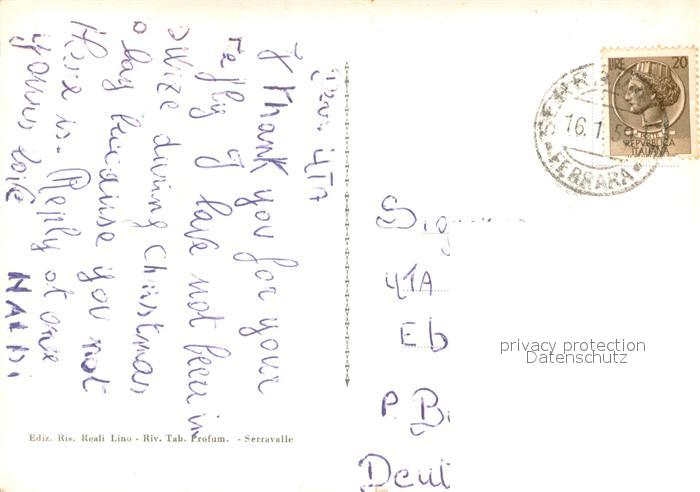 Dear UTA
I thank you for your
reply I have not been in
during Christmas
day because you not
Here is. Reply at once
yours
NALDI
LIRE 20
REPUBBLICA
ITALIANA
16. 1. 59
FERRARA
Sig
UTA
Eb
P. B
Deut
privacy protection
Datenschutz
Ediz. Ris. Reali Lino - Riv. Tab. Profum. - Serravalle